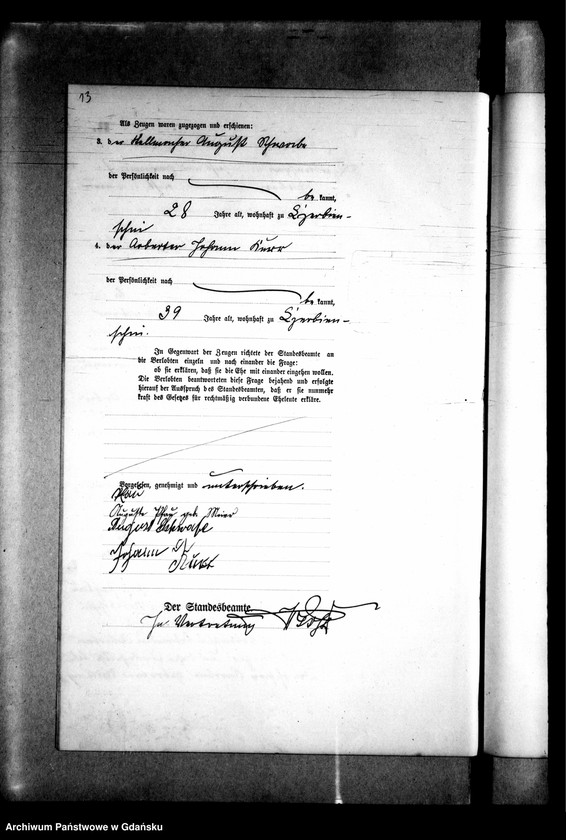 13
Als Zeugen waren zugezogen und erschienen:
3. der August Schwabe
der Persönlichkeit nach
be kannt,
28 Jahre alt, wohnhaft zu Czerbien-
schin
4. der Arbeiter Johann Kurr
der Persönlichkeit nach
be kannt,
39 Jahre alt, wohnhaft zu Czerbien-
schin.
In Gegenwart der Zeugen richtete der Standesbeamte an
die Verlobten einzeln und nach einander die Frage:
ob sie erklären, daß sie die Ehe mit einander eingehen wollen.
Die Verlobten beantworteten diese Frage bejahend und erfolgte
hierauf der Ausspruch des Standesbeamten, daß er sie nunmehr
kraft des Gesetzes für rechtmäßig verbundene Eheleute erkläre.
Vorgelesen, genehmigt und unterschrieben.
Auguste geb. Meier
August Schwabe
Johann Kurr
Der Standesbeamte
In Vertretung
Archiwum Państwowe w Gdańsku